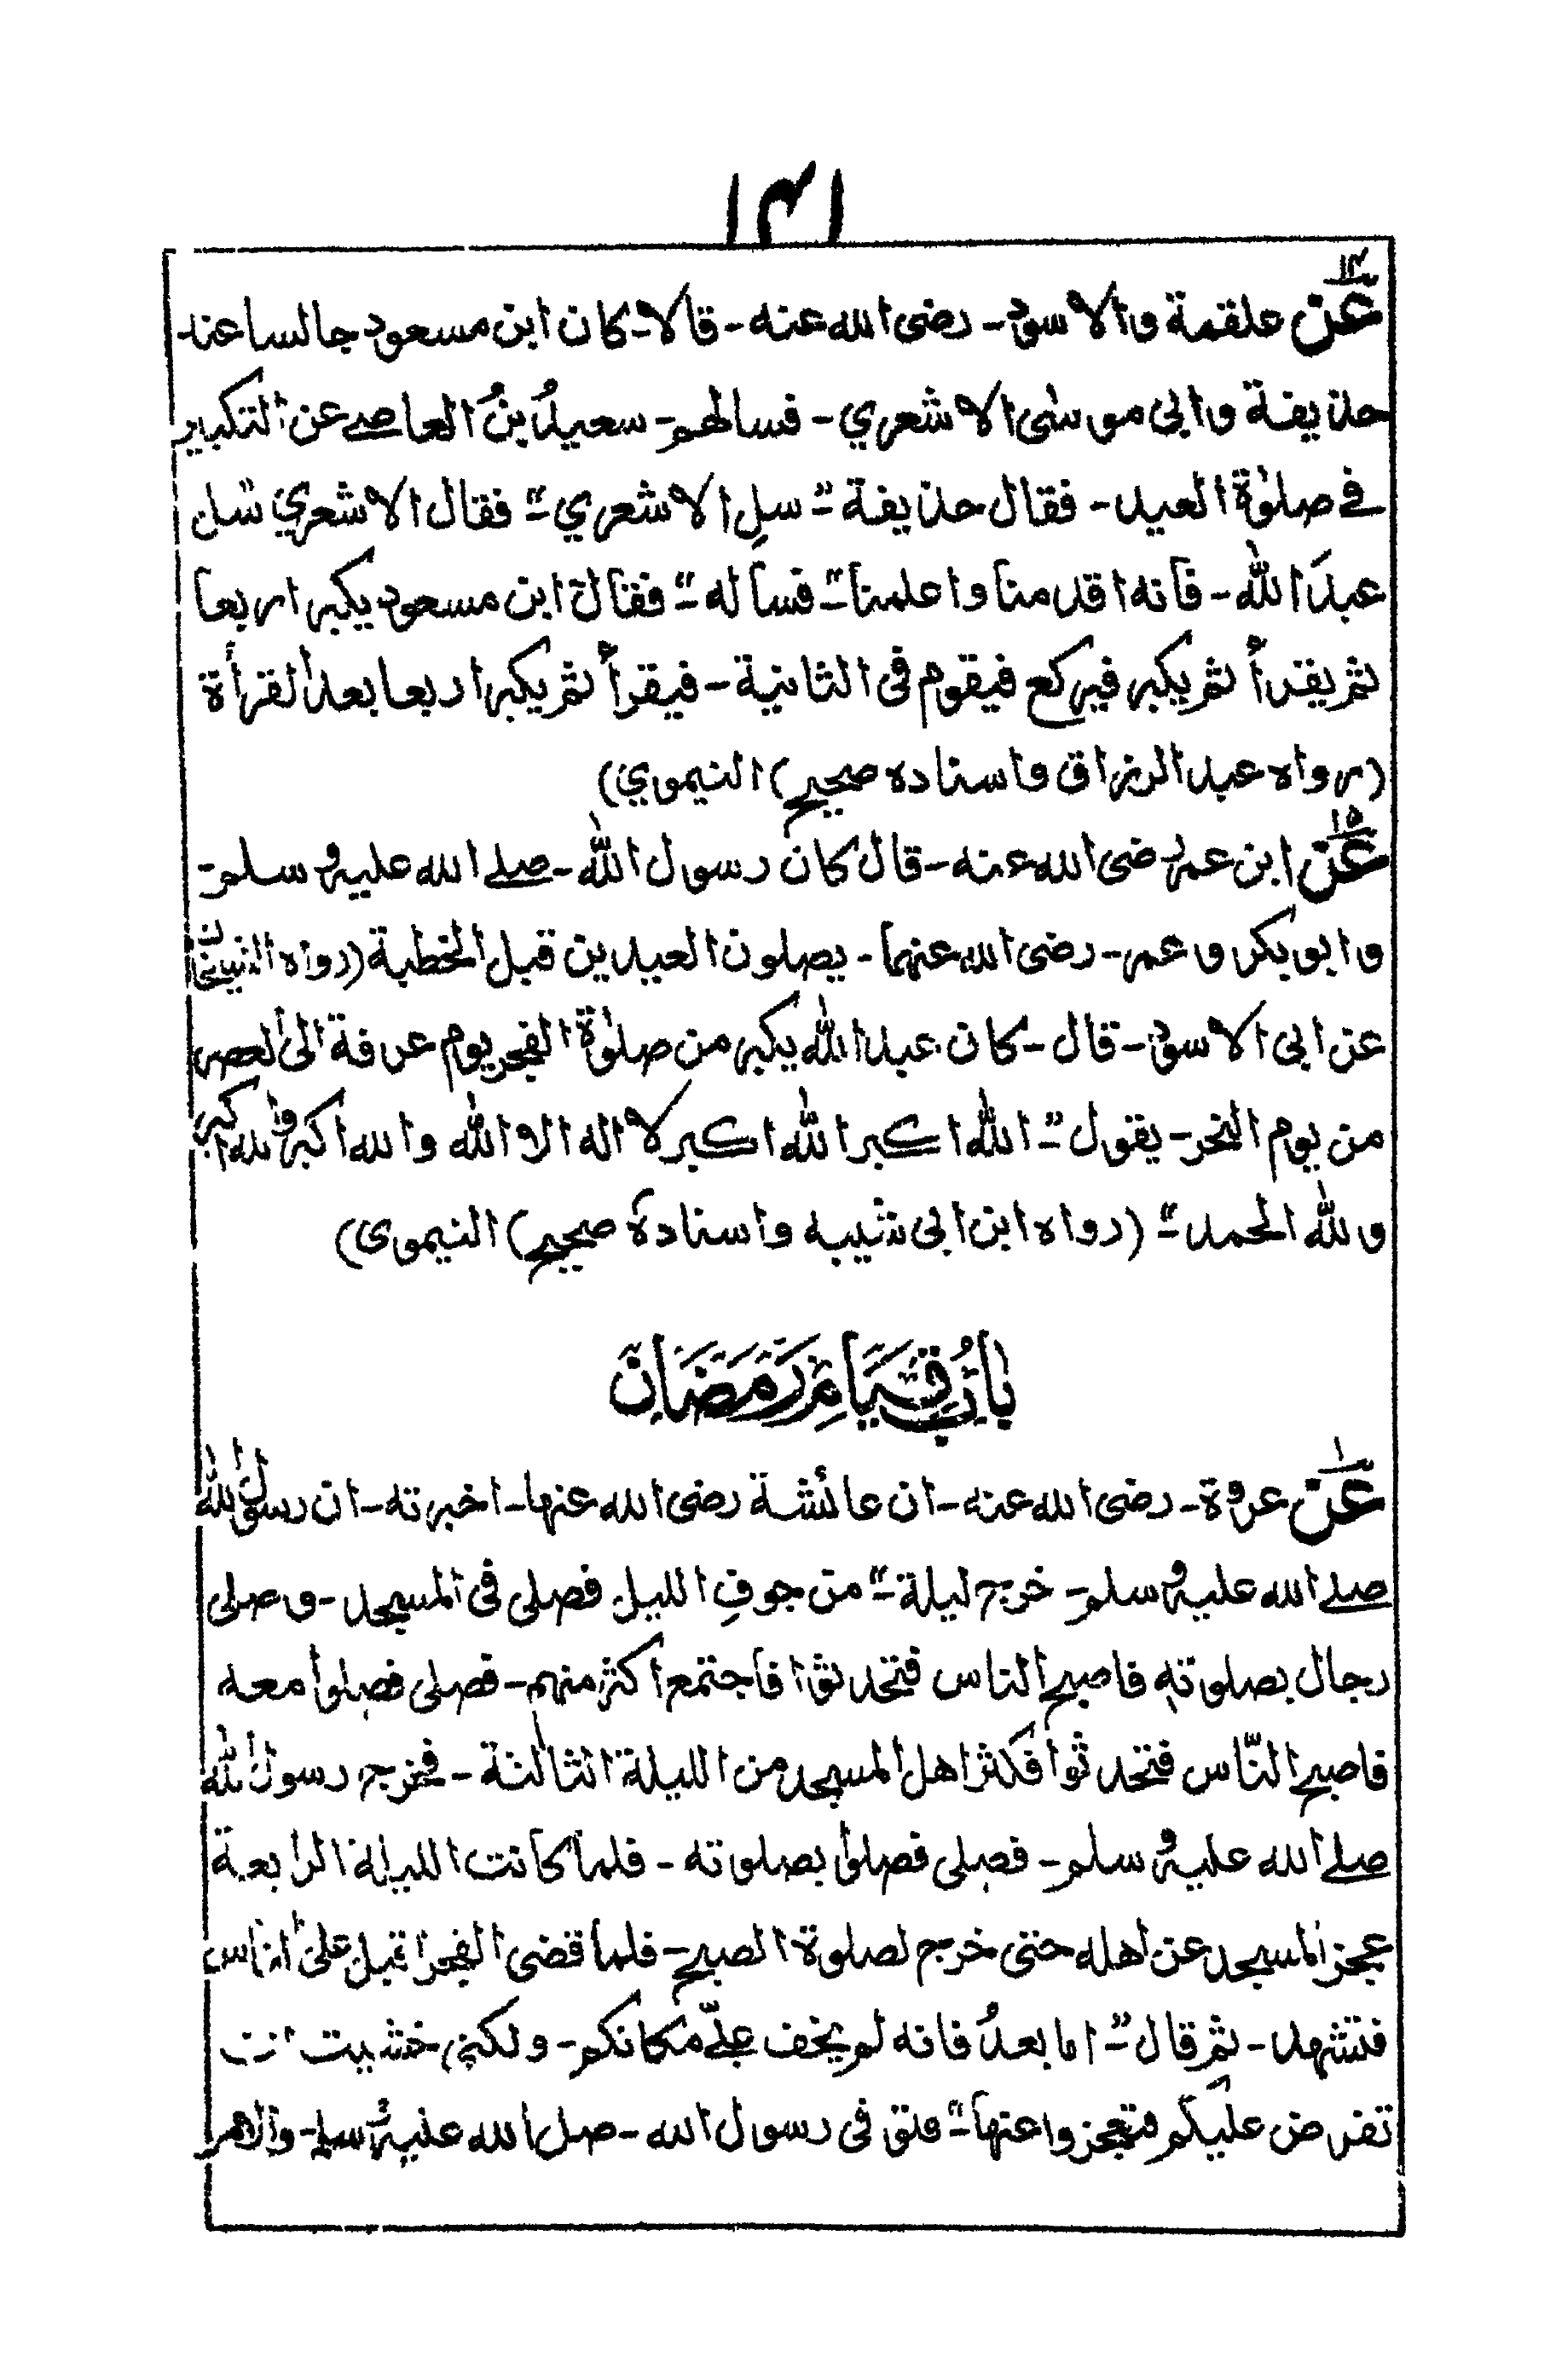 ۱۴۱
۱۴
عن علقمة والاسود - رضى الله عنه - قالا - كان ابن مسعود جالسا عند
حذيفة وابى موسٰى الاشعري - فسالهم - سعيدُ بنُ العاصے عن التكبير
فے صلوٰة العيد - فقال حذيفة " سلِ الاشعري " فقال الاشعري سل
عبدَ اللّٰه - فانه اقدمنا واعلمنا " فساله " فقال ابن مسعود يكبر اربعا
ثم يقرأ ثم يكبر فيركع فيقوم فى الثانية - فيقرأ ثم يكبر اربعا بعد القرأة
(رواه عبد الرزاق واسناده صحيح) النيموي)
۱۵
عن ابن عمر رضى الله عنه - قال كان رسول اللّٰه - صلے الله عليه وسلم -
وابو بكر وعمر - رضى الله عنهما - يصلون العيدين قبل الخطبة (رواه الشيخان
عن ابى الاسود - قال - كان عبد اللّٰه يكبر من صلوٰة الفجر يوم عرفة الى العصر
من يوم النحر - يقول " اللّٰه اكبر اللّٰه اكبر لا اله الا اللّٰه والله اكبر والله اكبر
وللّٰه الحمد " (رواه ابن ابى شيبه واسنادهٗ صحيح) النيموى)
بَابُ قِيَامِ رَمَضَانَ
۱
عن عروة - رضى الله عنه - ان عائشة رضى الله عنها - اخبرته - ان رسول اللّٰه
صلے الله عليه وسلم - خرج ليلة " من جوفِ الليل فصلى فى المسجد - وصلى
رجال بصلوته فاصبح الناس فتحدثوا فاجتمع اكثر منهم - فصلى فصلوا معه
فاصبح النّاس فتحدثوا فكثر اهل المسجد من الليلة الثالثة - فخرج رسول اللّٰه
صلے الله عليه وسلم - فصلى فصلوا بصلوته - فلما كانت الليلة الرابعة
عجز المسجد عن اهله حتى خرج لصلوة الصبح - فلما قضى الفجر اقبل على الناس
فتشهد - ثم قال " اما بعدُ فانه لم يخف علےّ مكانكم - ولكنى خشيت ان
تفرض عليكم فتعجزوا عنها " فتوفى رسول الله - صلى الله عليه وسلم - والامر